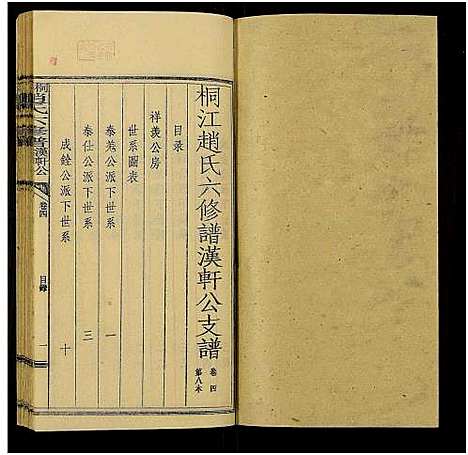 桐江趙氏六修譜漢軒公支譜
卷四
第八本
目录
祥羨公房
世系圖表
泰羌公派下世系 一
泰仕公派下世系 三
成銓公派下世系 十
卷四
目錄
一